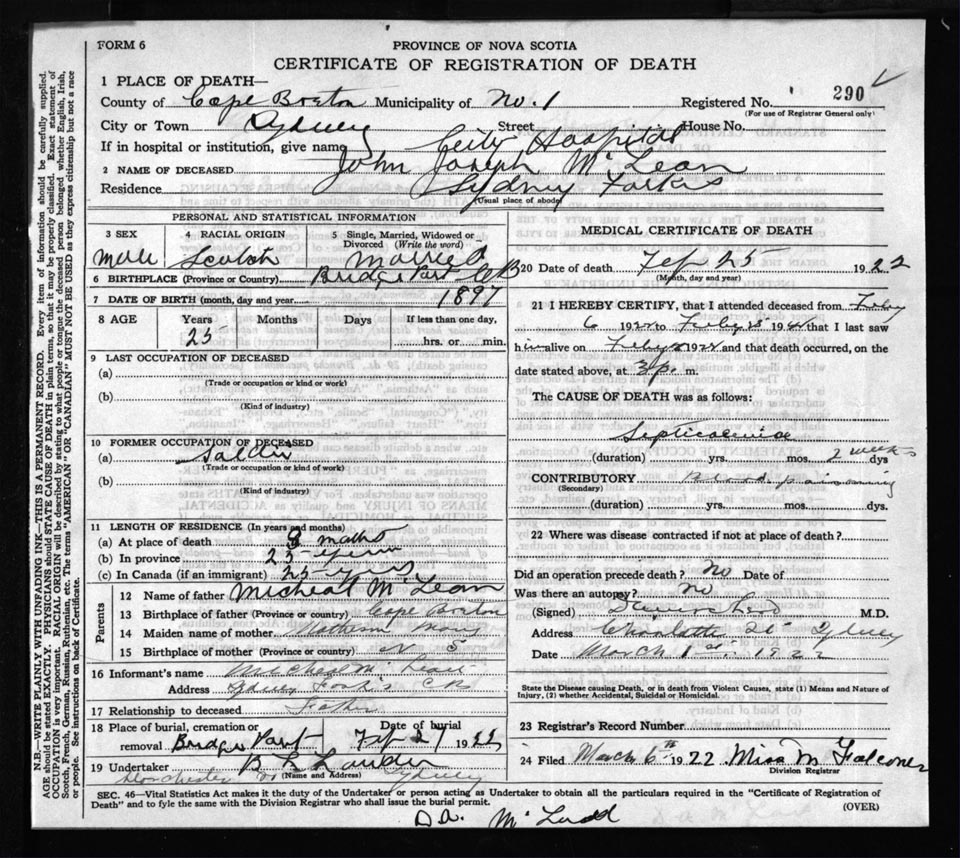 FORM 6
PROVINCE OF NOVA SCOTIA
CERTIFICATE OF REGISTRATION OF DEATH
1 PLACE OF DEATH—
County of Cape Breton Municipality of No. 1 Registered No. 290
(For use of Registrar General only)
City or Town Sydney Street House No.
If in hospital or institution, give name City Hospital
2 NAME OF DECEASED John Joseph McLean
Residence Sydney Forks
(Usual place of abode)
PERSONAL AND STATISTICAL INFORMATION
3 SEX
4 RACIAL ORIGIN
5 Single, Married, Widowed or Divorced (Write the word)
Male Scotch Married
6 BIRTHPLACE (Province or Country) Bridge Port CB
7 DATE OF BIRTH (month, day and year) 1897
8 AGE Years Months Days If less than one day,
25 hrs. or min.
9 LAST OCCUPATION OF DECEASED
(a)
(Trade or occupation or kind of work)
(b)
(Kind of industry)
10 FORMER OCCUPATION OF DECEASED
(a)
(Trade or occupation or kind of work)
(b)
(Kind of industry)
11 LENGTH OF RESIDENCE (In years and months)
(a) At place of death
(b) In province 25 years
(c) In Canada (if an immigrant) 25 years
Parents
12 Name of father Micheal McLean
13 Birthplace of father (Province or country) Cape Breton
14 Maiden name of mother Mary
15 Birthplace of mother (Province or country) N S
16 Informant's name Micheal McLean
Address Sydney Forks CB
17 Relationship to deceased Father
18 Place of burial, cremation or removal Bridge Port
Date of burial Feb 27 1922
19 Undertaker
(Name and Address)
Dorchester Sydney
MEDICAL CERTIFICATE OF DEATH
20 Date of death Feb 25 1922
(Month, day and year)
21 I HEREBY CERTIFY, that I attended deceased from Feby
6 1922 to Feby 25 1922 that I last saw
him alive on Feby 1922 and that death occurred, on the
date stated above, at 3 p. m.
The CAUSE OF DEATH was as follows:
Septicaemia
(duration) yrs. mos. 2 weeks dys
CONTRIBUTORY Blood poisoning
(Secondary)
(duration) yrs. mos. dys.
22 Where was disease contracted if not at place of death?
Did an operation precede death? No Date of
Was there an autopsy? No
(Signed) M.D.
Address Charlotte St Sydney
Date March 1st 1922
State the Disease causing Death, or in death from Violent Causes, state (1) Means and Nature of
Injury, (2) whether Accidental, Suicidal or Homicidal.
23 Registrar's Record Number
24 Filed March 6th 1922 Miss M Falconer
Division Registrar
SEC. 46—Vital Statistics Act makes it the duty of the Undertaker or person acting as Undertaker to obtain all the particulars required in the "Certificate of Registration of
Death" and to fyle the same with the Division Registrar who shall issue the burial permit.
(OVER)
N.B.—WRITE PLAINLY WITH UNFADING INK—THIS IS A PERMANENT RECORD. Every item of information should be carefully supplied.
AGE should be stated EXACTLY. PHYSICIANS should STATE CAUSE OF DEATH in plain terms, so that it may be properly classified. Exact statement of
OCCUPATION is very important. RACIAL ORIGIN will be described by stating to what people or tongue the deceased person belonged whether English, Irish,
Scotch, French, German, Russian, Ruthenian, etc. The terms "AMERICAN" OR "CANADIAN" MUST NOT BE USED as they express citizenship but not a race
or people. See instructions on back of Certificate.